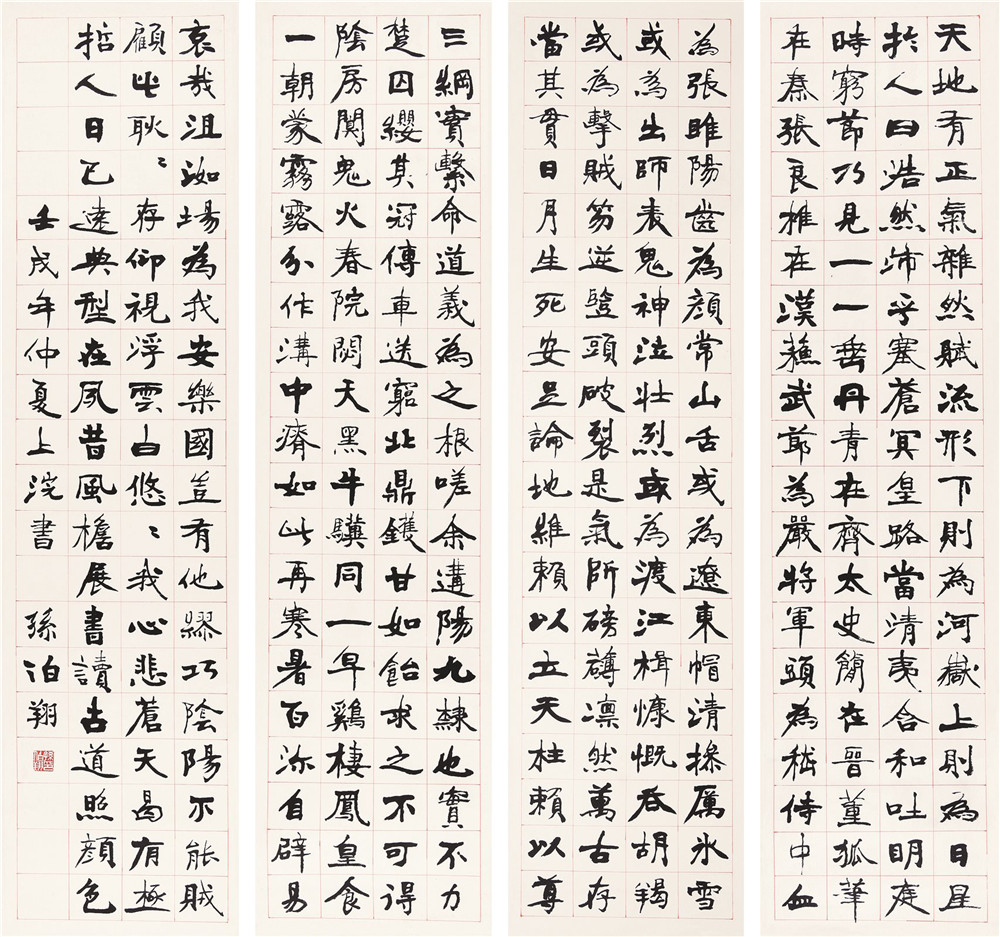 天地有正氣雜然賦流形下則為河嶽上則為日星
於人曰浩然沛乎塞蒼冥皇路當清夷含和吐明庭
時窮節乃見一一垂丹青在齊太史簡在晉董狐筆
在秦張良椎在漢蘇武節為嚴將軍頭為嵇侍中血
為張睢陽齒為顏常山舌或為遼東帽清操厲冰雪
或為出師表鬼神泣壯烈或為渡江楫慷慨吞胡羯
或為擊賊笏逆豎頭破裂是氣所磅礴凜然萬古存
當其貫日月生死安足論地維賴以立天柱賴以尊
三綱實繫命道義為之根嗟余遘陽九隸也實不力
楚囚纓其冠傳車送窮北鼎鑊甘如飴求之不可得
陰房闃鬼火春院閟天黑牛驥同一皁雞棲鳳皇食
一朝蒙霧露分作溝中瘠如此再寒暑百沴自辟易
哀哉沮洳場為我安樂國豈有他繆巧陰陽不能賊
顧此耿〻存仰視浮雲白悠〻我心悲蒼天曷有極
哲人日已遠典型在夙昔風檐展書讀古道照顏色
壬戌年仲夏上浣書 孫伯翔